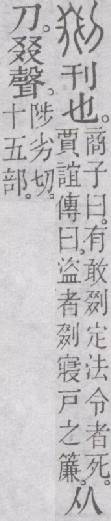 剟刊也。
商子曰。有敢剟定法令者死。
賈誼傳曰。盜者剟寢戶之簾。
从
刀。叕聲。
陟劣切。
十五部。